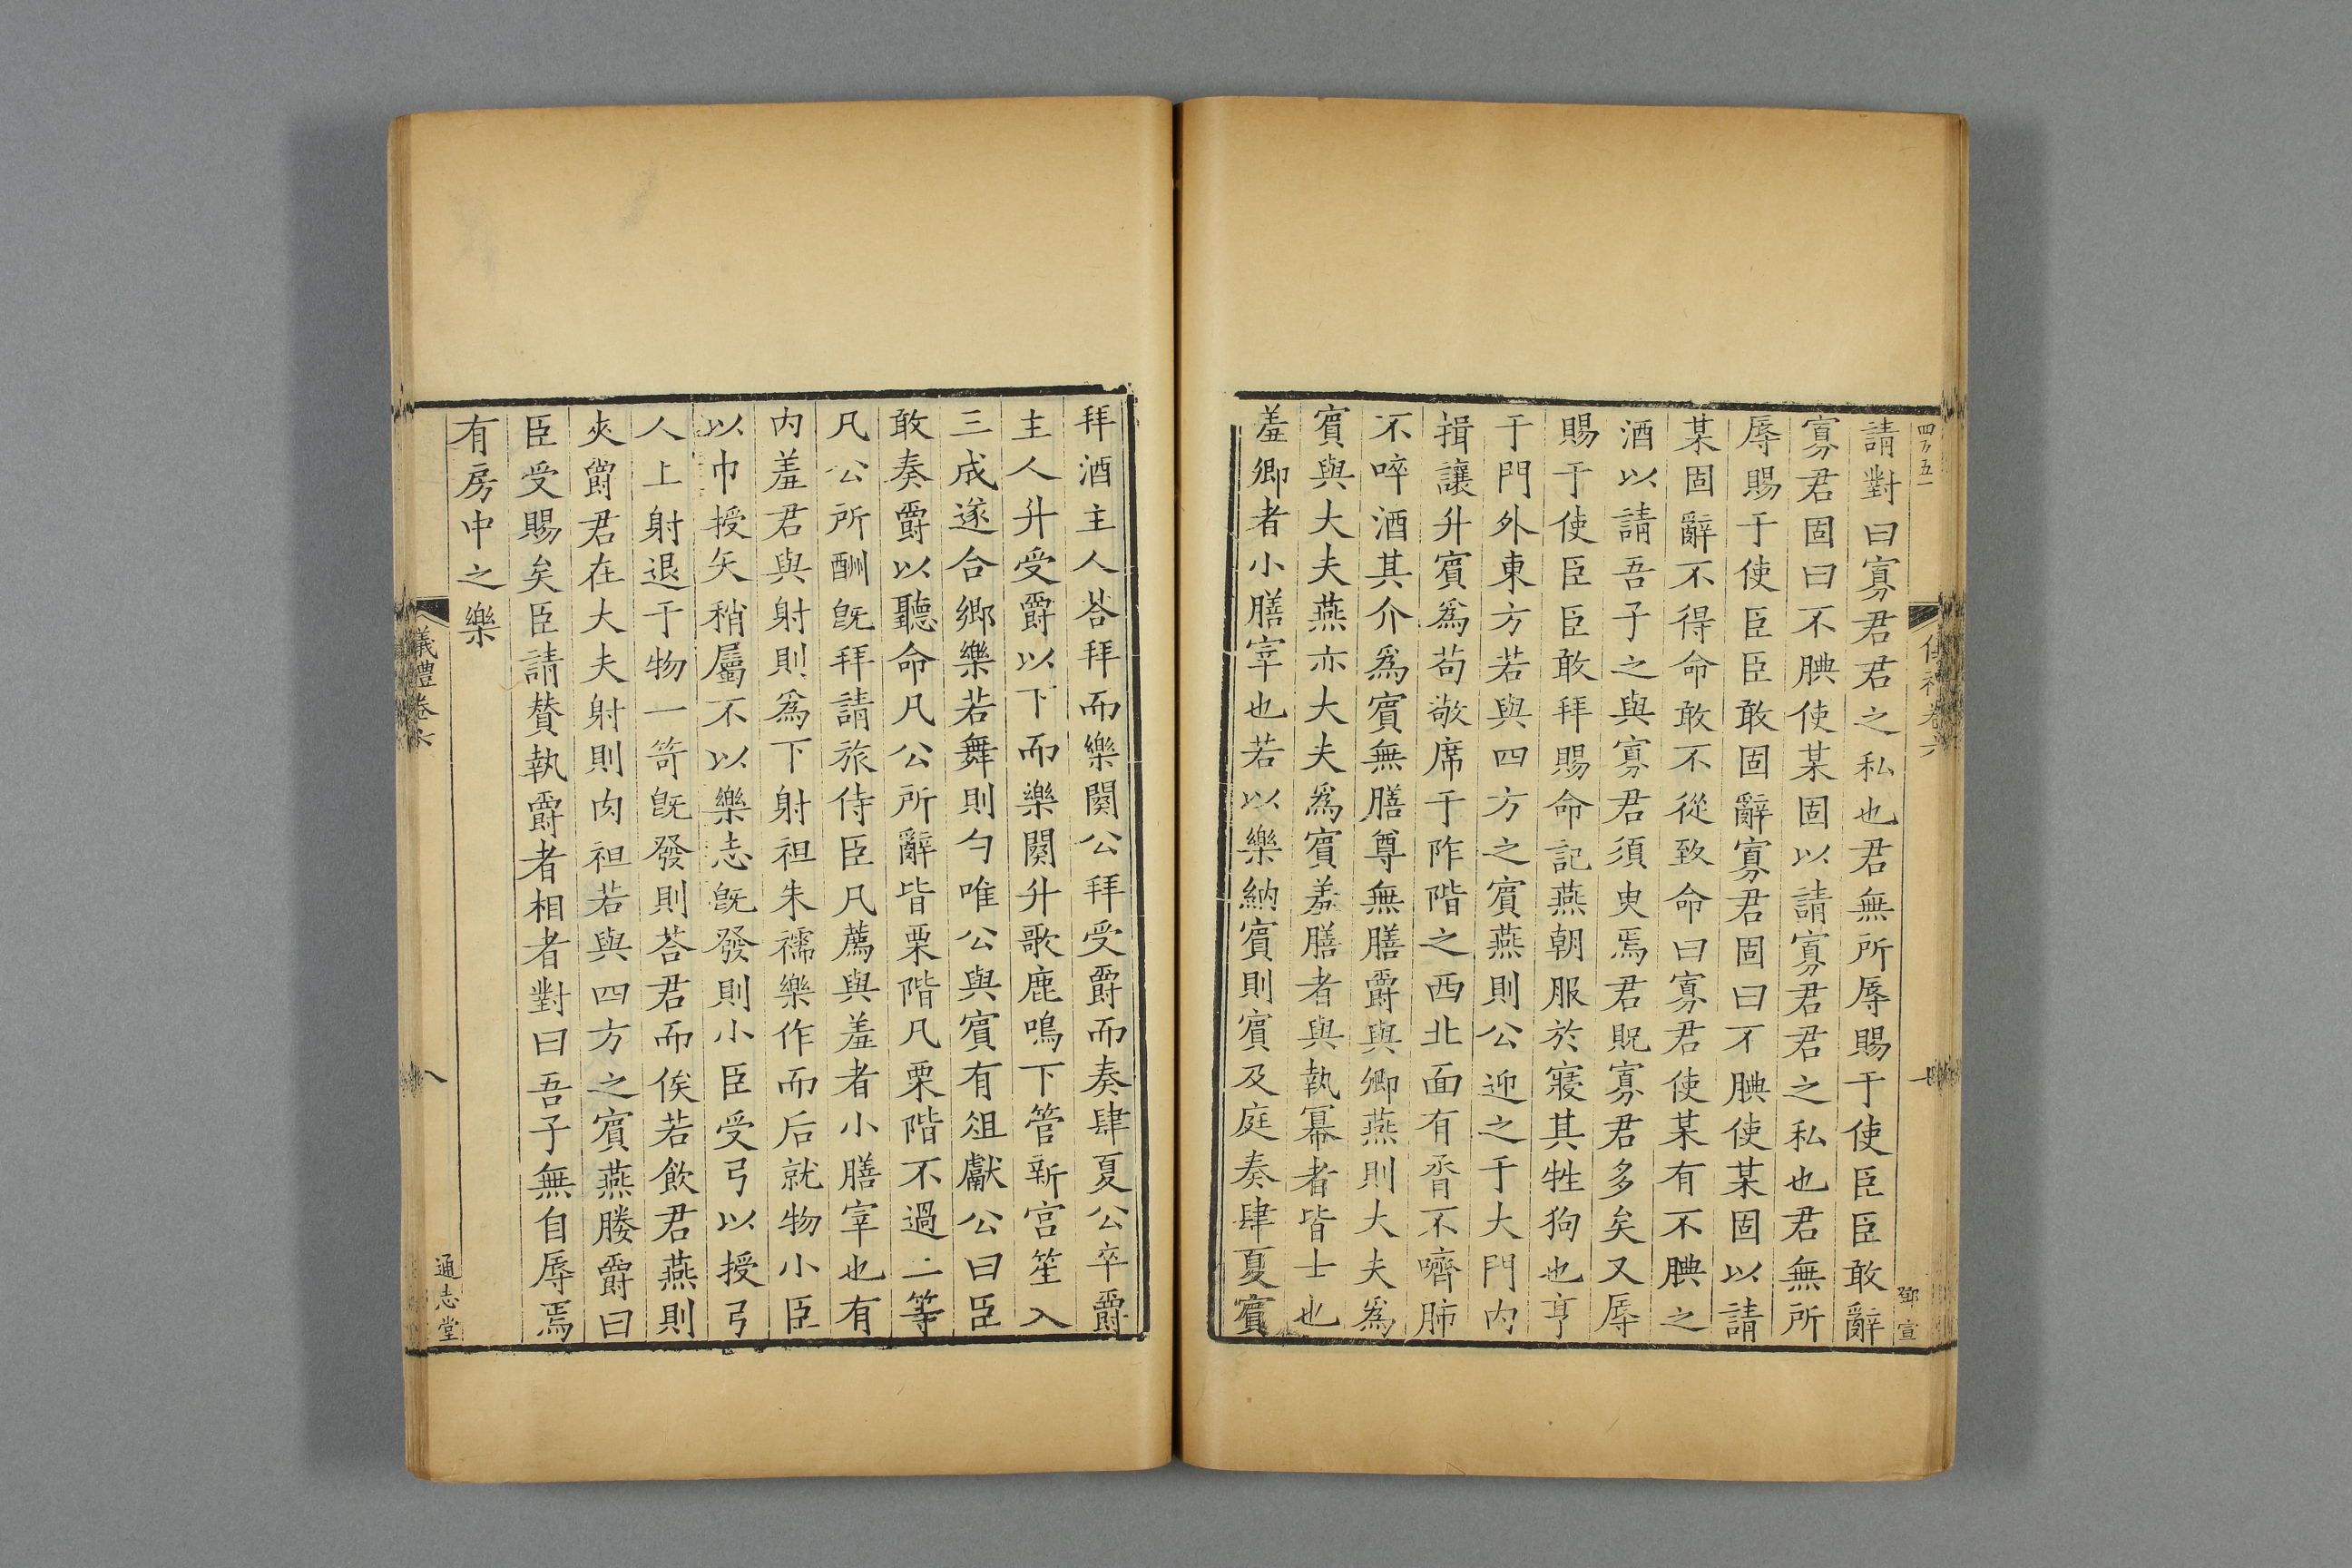 請對曰寡君君之私也君無所辱賜于使臣臣敢辭
寡君固曰不腆使某固以請寡君君之私也君無所
辱賜于使臣臣敢固辭寡君固曰不腆使某固以請
某固辭不得命敢不從致命曰寡君使某有不腆之
酒以請吾子之與寡君須臾焉君貺寡君多矣又辱
賜于使臣臣敢拜賜命記燕朝服於寢其牲狗也亨
于門外東方若與四方之賓燕則公迎之于大門內
揖讓升賓爲苟敬席于阼階之西北面有脀不嚌肺
不啐酒其介爲賓無膳尊無膳爵與卿燕則大夫爲
賓與大夫燕亦大夫爲賓羞膳者與執冪者皆士也
羞卿者小膳宰也若以樂納賓則賓及庭奏肆夏賓
拜酒主人荅拜而樂闋公拜受爵而奏肆夏公卒爵
主人升受爵以下而樂闋升歌鹿鳴下管新宮笙入
三成遂合鄉樂若舞則勺唯公與賓有俎獻公曰臣
敢奏爵以聽命凡公所辭皆栗階凡栗階不過二等
凡公所酬旣拜請旅侍臣凡薦與羞者小膳宰也有
內羞君與射則爲下射袒朱襦樂作而后就物小臣
以巾授矢稍屬不以樂志旣發則小臣受弓以授弓
人上射退于物一笴旣發則荅君而俟若飲君燕則
夾爵君在大夫射則肉袒若與四方之賓燕媵爵曰
臣受賜矣臣請贊執爵者相者對曰吾子無自辱焉
有房中之樂
儀禮卷六
八
通志堂
鄧宣